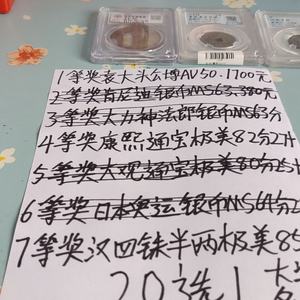 1等奖袁大头公博AU50.1700元
2等奖肯尼迪银币MS63.380元
3等奖大力神法郎银币MS63分
4等奖康熙通宝极美82分2廾
5等奖大观通宝极美80分25廾
6等奖日本奥运银币MS64分2
7等奖汉四铢半两极美85
20选1